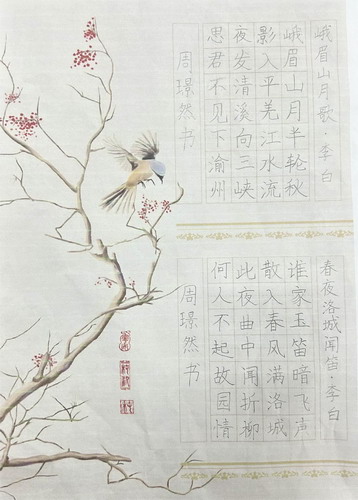 峨眉山月歌·李白
峨眉山月半轮秋
影入平羌江水流
夜发清溪向三峡
思君不见下渝州
周璟然书
春夜洛城闻笛·李白
谁家玉笛暗飞声
散入春风满洛城
此夜曲中闻折柳
何人不起故园情
周璟然书